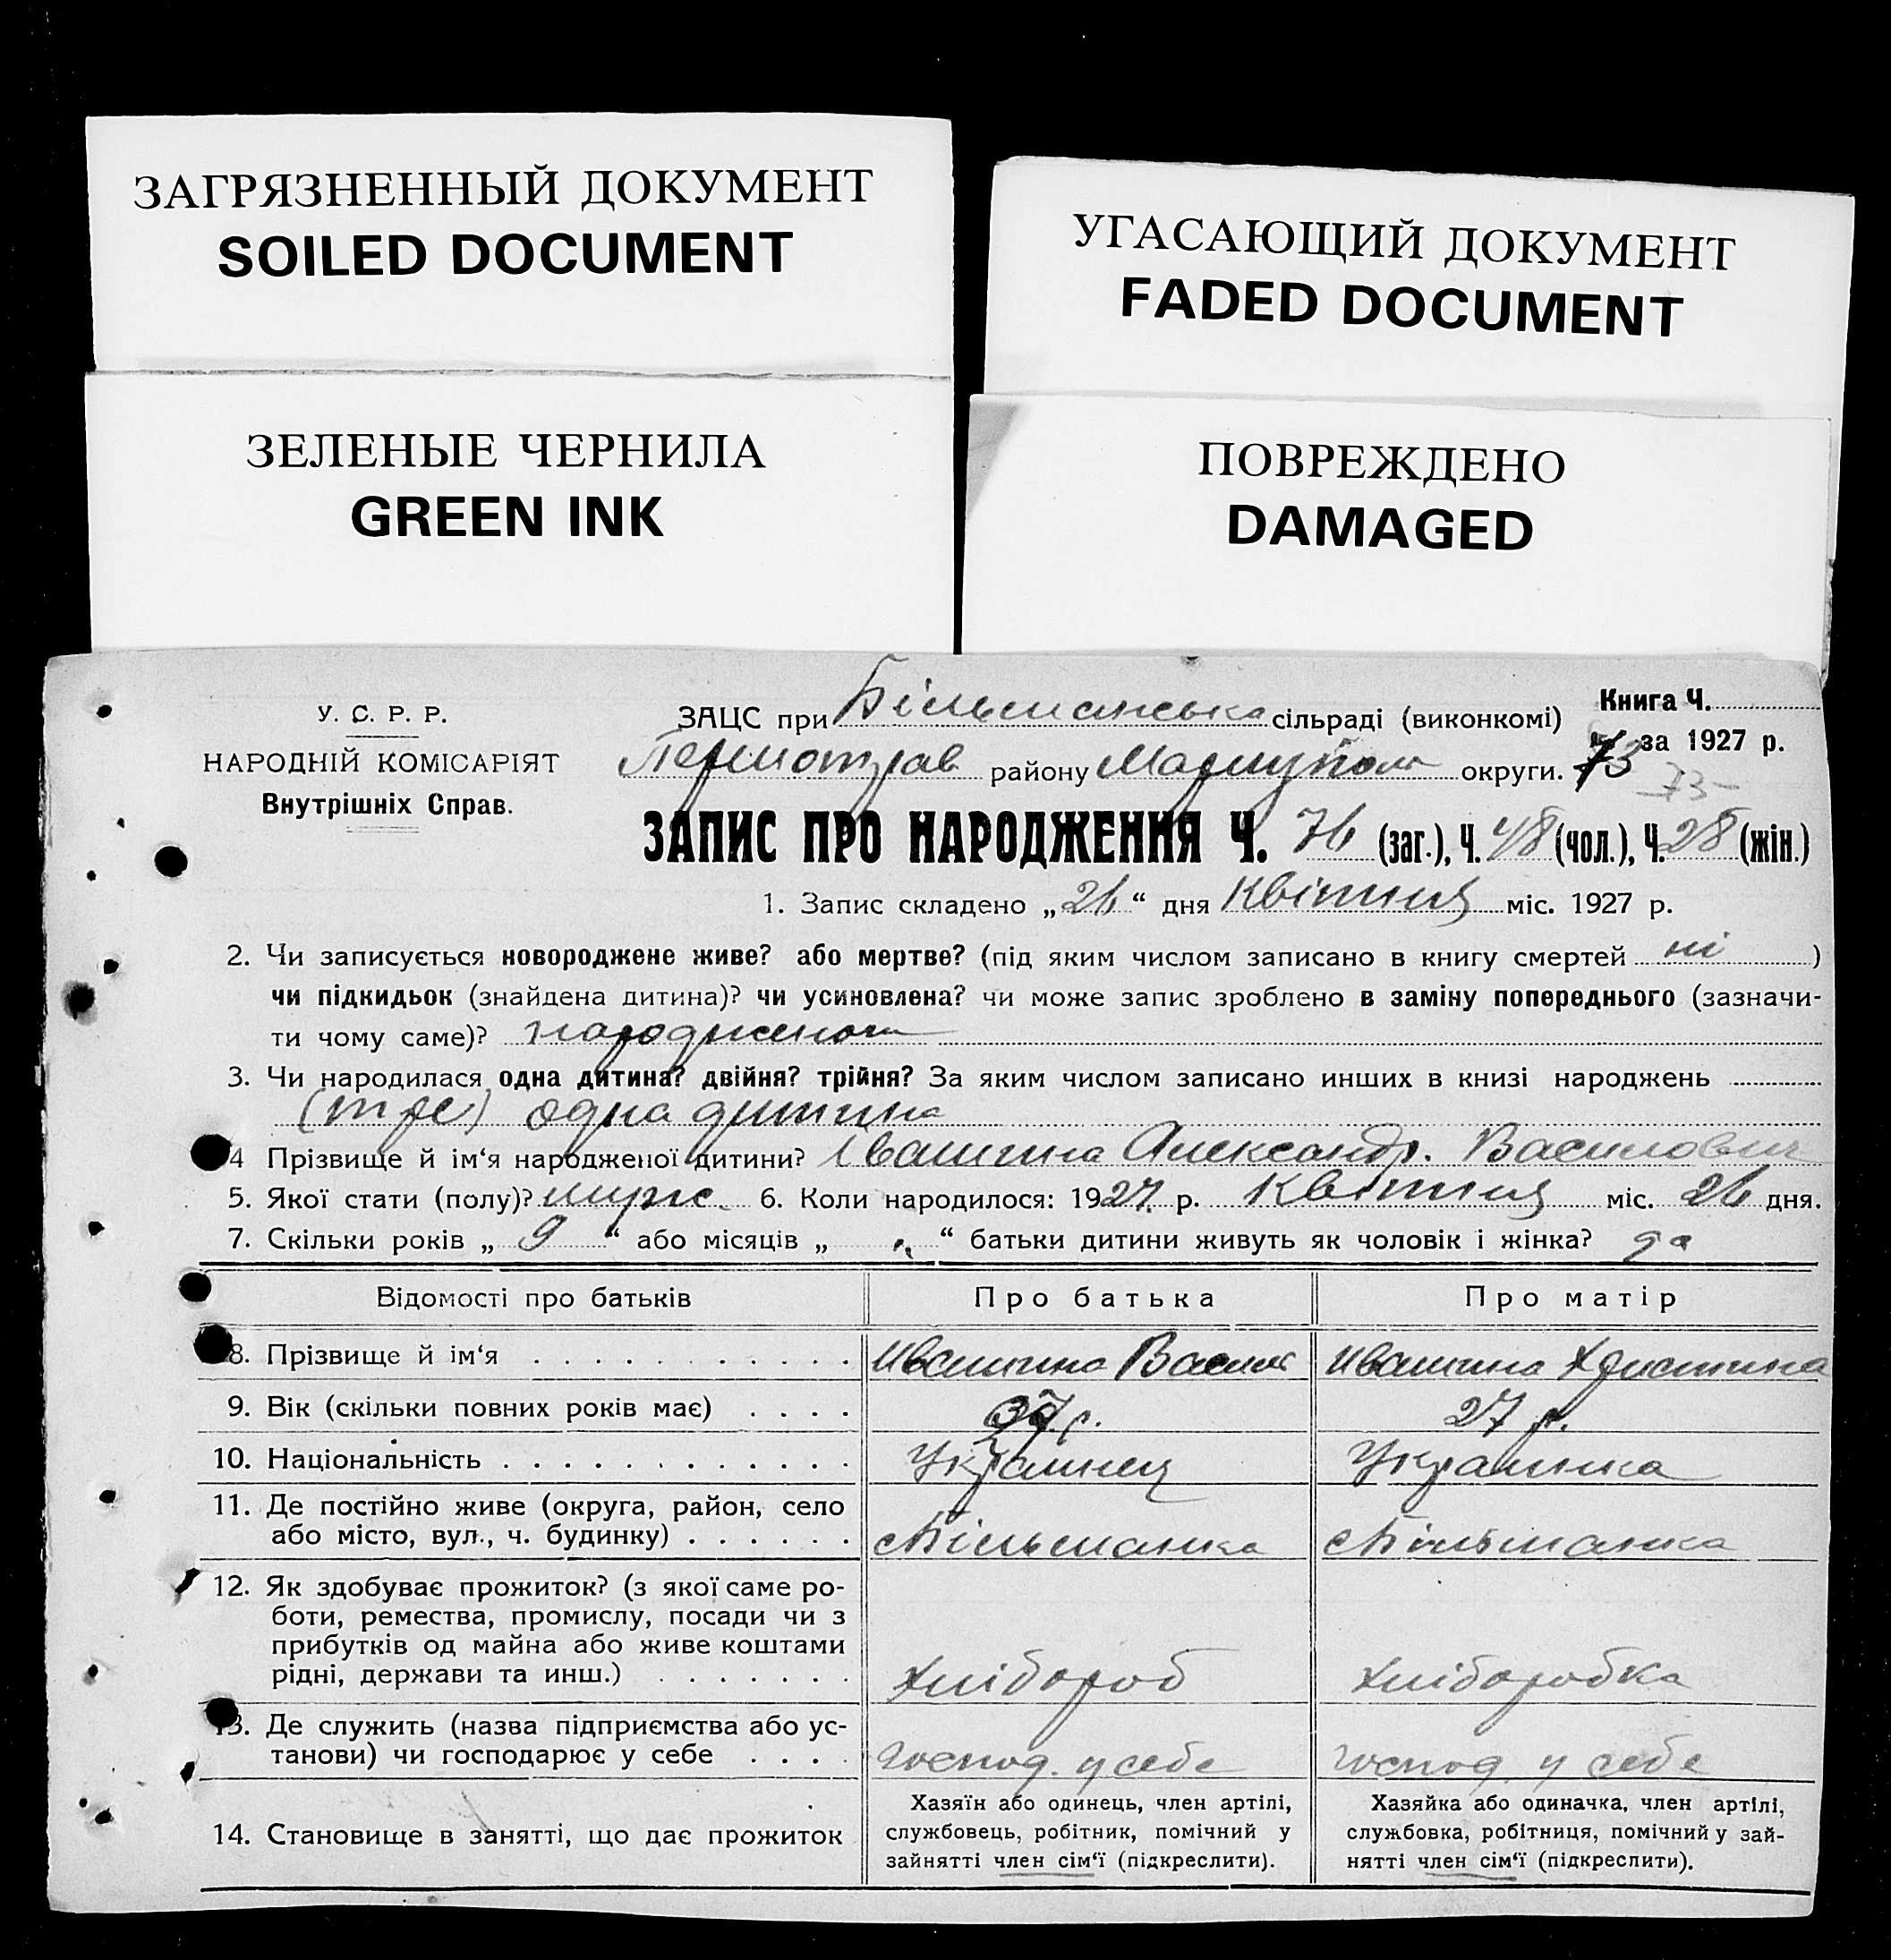 ЗАГРЯЗНЕННЫЙ ДОКУМЕНТ
SOILED DOCUMENT
УГАСАЮЩИЙ ДОКУМЕНТ
FADED DOCUMENT
ЗЕЛЕНЫЕ ЧЕРНИЛА
GREEN INK
ПОВРЕЖДЕНО
DAMAGED
У. С. Р. Р.
НАРОДНІЙ КОМІСАРІЯТ
Внутрішніх Справ.
ЗАЦС при Більманська сільраді (виконкомі)
Книга Ч.
за 1927 р.
району Маріупол округи. 73
73
ЗАПИС ПРО НАРОДЖЕННЯ Ч. 76 (заг.), Ч. 48 (чол.), Ч. 28 (жін.)
1. Запис складено „26“ дня Квітня міс. 1927 р.
2. Чи записується новороджене живе? або мертве? (під яким числом записано в книгу смертей ні )
чи підкидьок (знайдена дитина)? чи усиновлена? чи може запис зроблено в заміну попереднього (зазначи-
ти чому саме)?
3. Чи народилася одна дитина? двійня? трійня? За яким числом записано инших в книзі народжень
одна дитина
4 Прізвище й ім‘я народженої дитини? Івашина Александр. Василович
5. Якої стати (полу)? муж. 6. Коли народилося: 1927 р. Квітня міс. 26 дня.
7. Скільки років „ 9 “ або місяців „ “ батьки дитини живуть як чоловік і жінка? да
Відомості про батьків
Про батька
Про матір
8. Прізвище й ім‘я
Ивашина Васил
Ивашина Христина
9. Вік (скільки повних років має)
р.
27 р.
10. Національність
Украинец
Украинка
11. Де постійно живе (округа, район, село
або місто, вул., ч. будинку)
с Більманка
с Більманка
12. Як здобуває прожиток? (з якої саме ро-
боти, ремества, промислу, посади чи з
прибутків од майна або живе коштами
рідні, держави та инш.)
Хлібороб
Хліборобка
13. Де служить (назва підприємства або ус-
танови) чи господарює у себе
Господ. у себе
Господ. у себе
14. Становище в занятті, що дає прожиток
Хазяїн або одинець, член артілі,
службовець, робітник, помічний у
зайнятті член сім‘ї (підкреслити).
Хазяйка або одиначка, член артілі,
службовка, робітниця, помічний у зай-
нятті член сім‘ї (підкреслити).